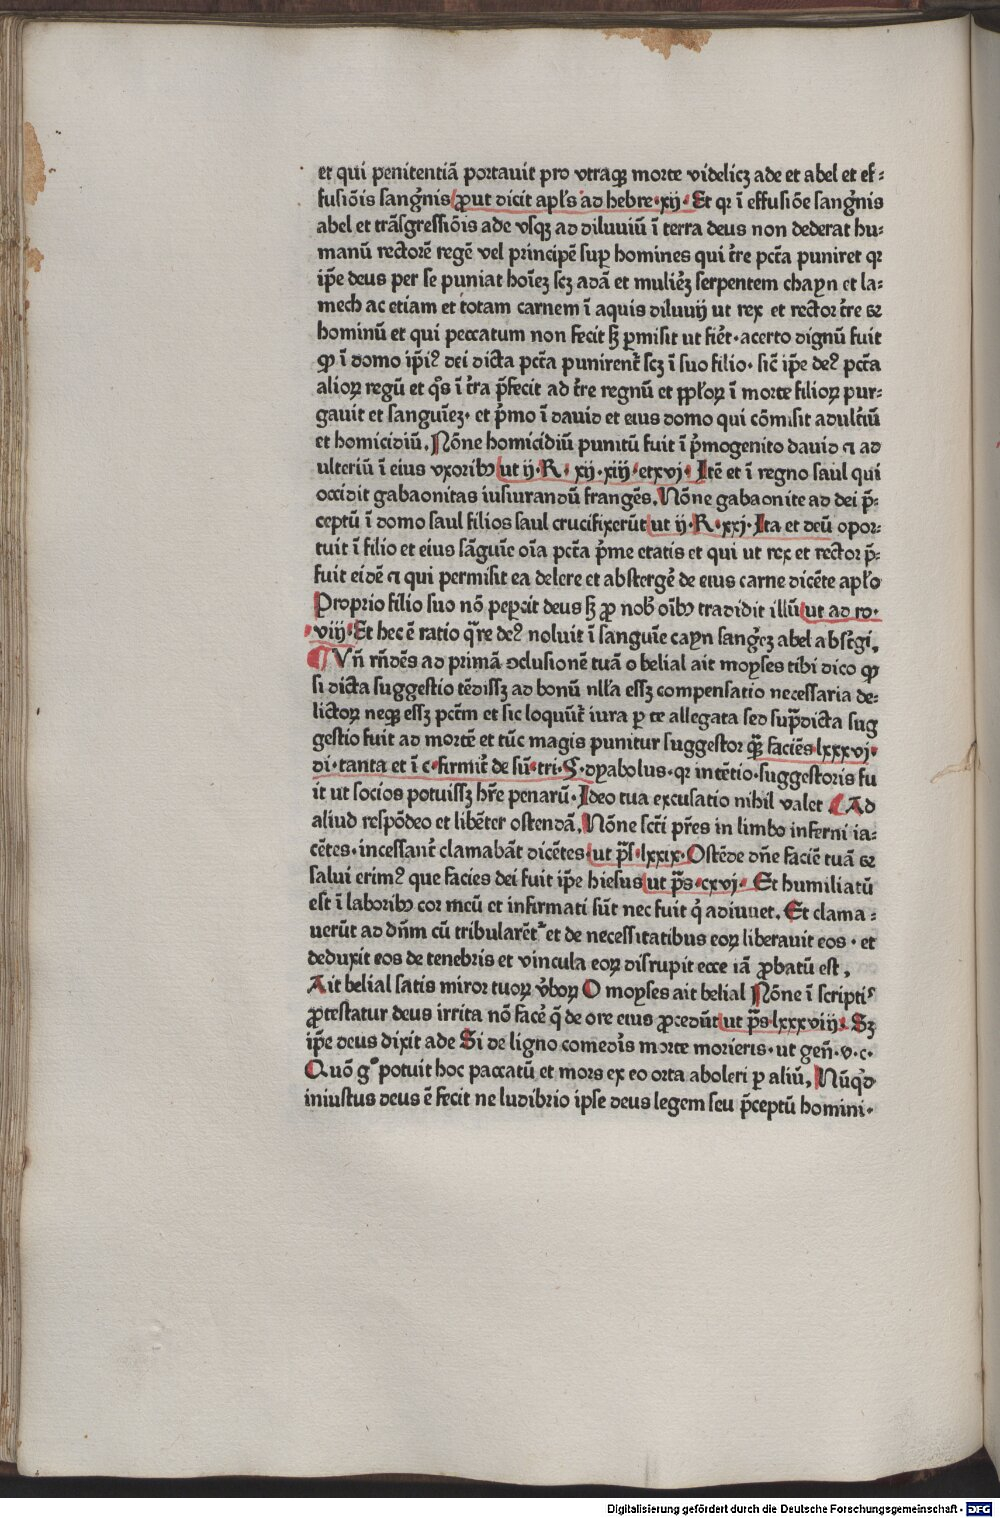 et qui penitentiā portauit pro vtraqꝫ morte videlicꝫ ade et abel et ef⸗
fusiōis sangīnis ꝓut dicit apl̄s ad hebre·xij· Et qꝛ ī effusiōe sangīnis
abel et trāsgressiōis ade vsqꝫ ad diluuiū ī terra deus non dederat hu⸗
manū rectorē regē vel principē suꝑ homines qui t̄re pctā puniret qꝛ
ip̄e deus per se puniat hoīeꝫ scꝫ adā et muliēꝫ serpentem chayn et la⸗
mech ac etiam et totam carnem ī aquis diluuij ut rex et rector t̄re ⁊
hominū et qui peccatum non fecit sꝫ ꝑmisit ut fiēt·acerto dignū fuit
ꝙ ī domo ip̄iꝰ dei dicta pctā punirent̄ scꝫ ī suo filio· sic̄ ip̄e deꝰ pctā
alioꝝ regū et q̄s ī t̄ra p̄fecit ad t̄re regnū et pp̄loꝝ ī morte filioꝝ pur⸗
gauit et sanguīeꝫ· et p̄mo ī dauid et eius domo qui cōmisit adult̄iū
et homicidiū. Nōne homicidiū punitū fuit ī p̄mogenito dauid ⁊ ad
ulteriū ī eius vxoribꝫ ut ij·R· xij·xiij·etxvj· Itē et ī regno saul qui
occidit gabaonitas iusiurandū frangēs. Nōne gabaonite ad dei p̄⸗
ceptū ī domo saul filios saul crucifixerūt ut ij·R·xxj·Ita et deū opor⸗
tuit ī filio et eius sāguīe oīa pctā p̄me etatis et qui ut rex et rector p̄⸗
fuit eidē ⁊ qui permisit ea delere et abstergē de eius carne dicēte apl̄o
Proprio filio suo nō pepcit deus sꝫ ꝓ nob̄ oībꝫ tradidit illū ut ad ro·
viij· Et hec ē ratio q̄re deꝰ noluit ī sanguīe cayn sangīeꝫ abel absťgi.
¶ Vn̄ rn̄dēs ad primā ꝯclusionē tuā o belial ait moyses tibi dico ꝙ
si dicta suggestio tēdissꝫ ad bonū nll̄a essꝫ compensatio necessaria de⸗
lictoꝝ neqꝫ essꝫ pctm̄ et sic loquūt̄ iura ꝑ te allegata sed sup̄dicta sug
gestio fuit ad mortē et tūc magis punitur suggestor qꝫ̄ faciēs lxxxvj·
di·tanta et ī c·firmit̄ de sū·tri·§·dyabolus·qꝛ intētio·suggestoris fu
it ut socios potuissꝫ hr̄e penarū·Ideo tua excusatio nihil valet. ¶ Ad
aliud respōdeo et libēter ostendā. Nōne scti̅ pr̄es in limbo inferni ia⸗
cētes·incessant̄ clamabāt dicētes ut p̄s·lxxix·Ostēde dn̄e faciē tuā ⁊
salui erimꝰ que facies dei fuit ip̄e hiesus ut p̄s·cxvj· Et humiliatū
est ī laboribꝫ cor meū et infirmati sūt nec fuit q̇ adiuuet. Et clama⸗
uerūt ad dn̄m cū tribularēt᷑ et de necessitatibus eoꝝ liberauit eos· et
deduxit eos de tenebris et vincula eoꝝ disrupit ecce iā ꝓbatū est.
Ait belial satis miror tuoꝝ v̄boꝝ O moyses ait belial Nōne ī scriptis
ꝓtestatur deus irrita nō facē q̄ de ore eius ꝓcedūt ut p̄s lxxxviij· Sꝫ
ip̄e deus dixit ade Si de ligno comedīs morte morieris·ut gen̄·v·c·
Quō gͦ potuit hoc paccatū et mors ex eo orta aboleri ꝑ aliū. Nūq̇d
iniustus deus ē fecit ne ludibrio ipse deus legem seu p̄ceptū homini·
Digitalisierung gefördert durch die Deutsche Forschungsgemeinschaft - DFG